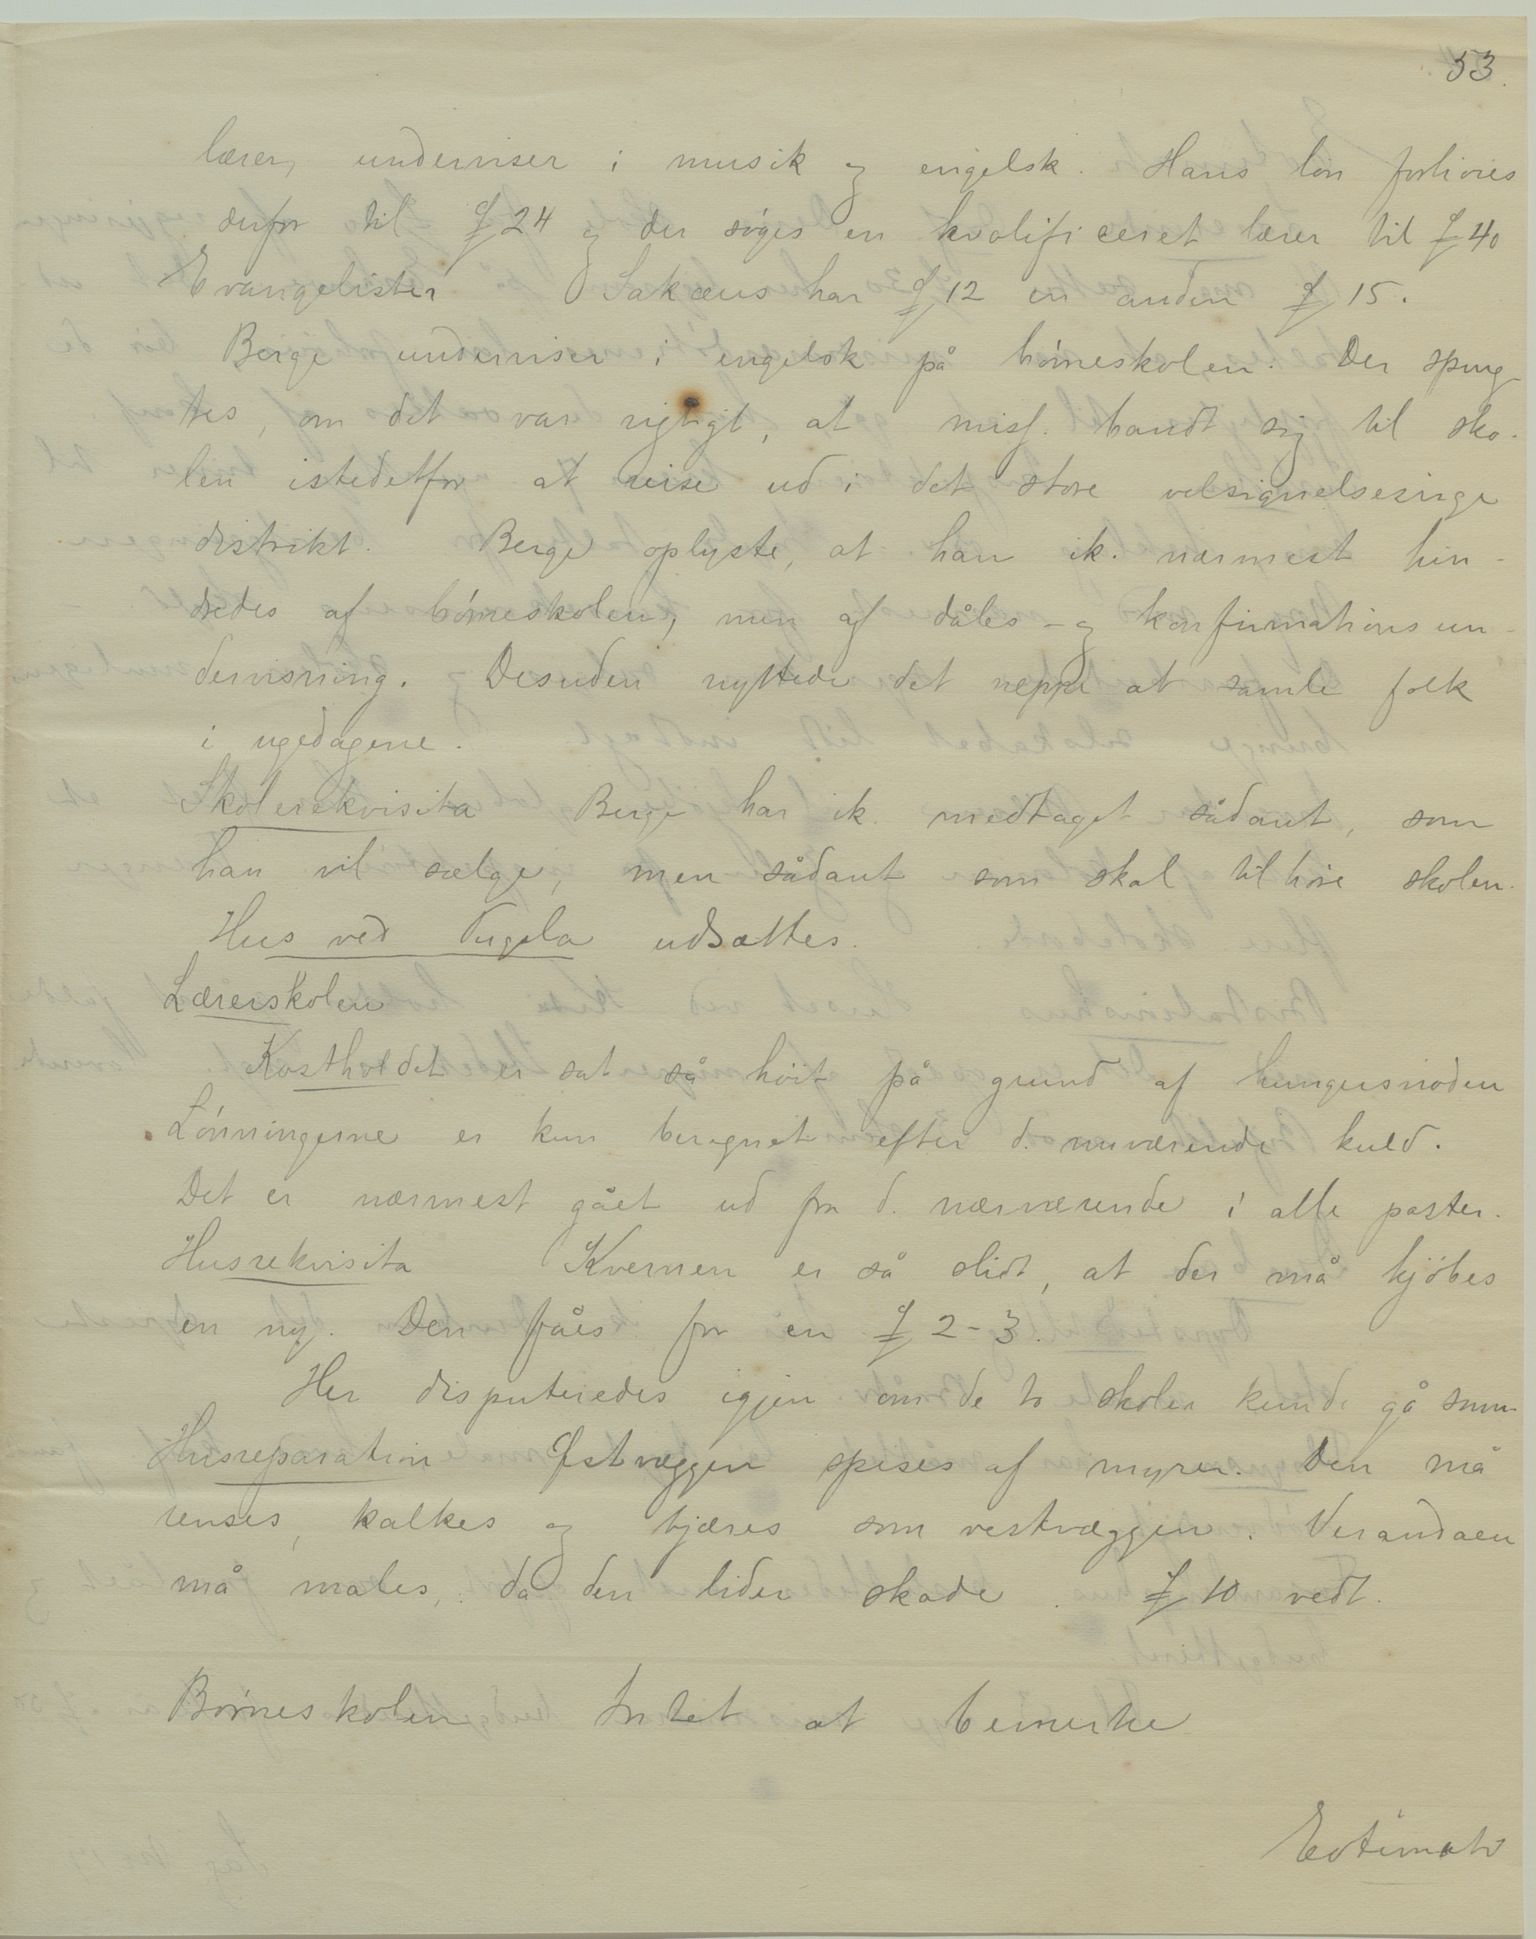 53.
lærer, underviser i musik og engelsk. Hans løn forhöies
derfor til £ 24 og der søges en kvalificeret lærer til £ 40
Evangelister Sakæus har £ 12 en anden £ 15.
Berge underviser i engelsk på börneskolen. Der spurg-
tes, om det var rigtigt, at miss. bandt sig til sko-
len istedetfor at reise ud i det store velsignelsesrige
distrikt. Berge oplyste, at han ik. nærmest hin-
dredes af börneskolen, men af dåbs- og konfirmationsun-
dervisning. Desuden nyttede det neppe at samle folk
i ugedagene.
Skolerekvisita Berge har ik. medtaget sådant, som
han vil sælge, men sådant som skal tilhöre skolen.
Hus ved Tugela udsættes.
Lærerskolen
Kostholdet er sat så höit på grund af hungersnöden
Lönningerne er kun beregnet efter d. nuværende kuld.
Det er nærmest gået ud fra d. nærværende i alle poster.
Husrekvisita Kvernen er så slidt, at der må kjöbes
en ny. Den fåes for en £ 2-3.
Her disputeredes igjen om de to skoler kunde gå sam-
Husreparation Østvæggen spises af myrer. Den må
renses, kalkes og tjæres som vestvæggen. Verandaen
må males, da den lider skade. £ 10 vedt.
Börneskolen Intet at bemerke
Estimato